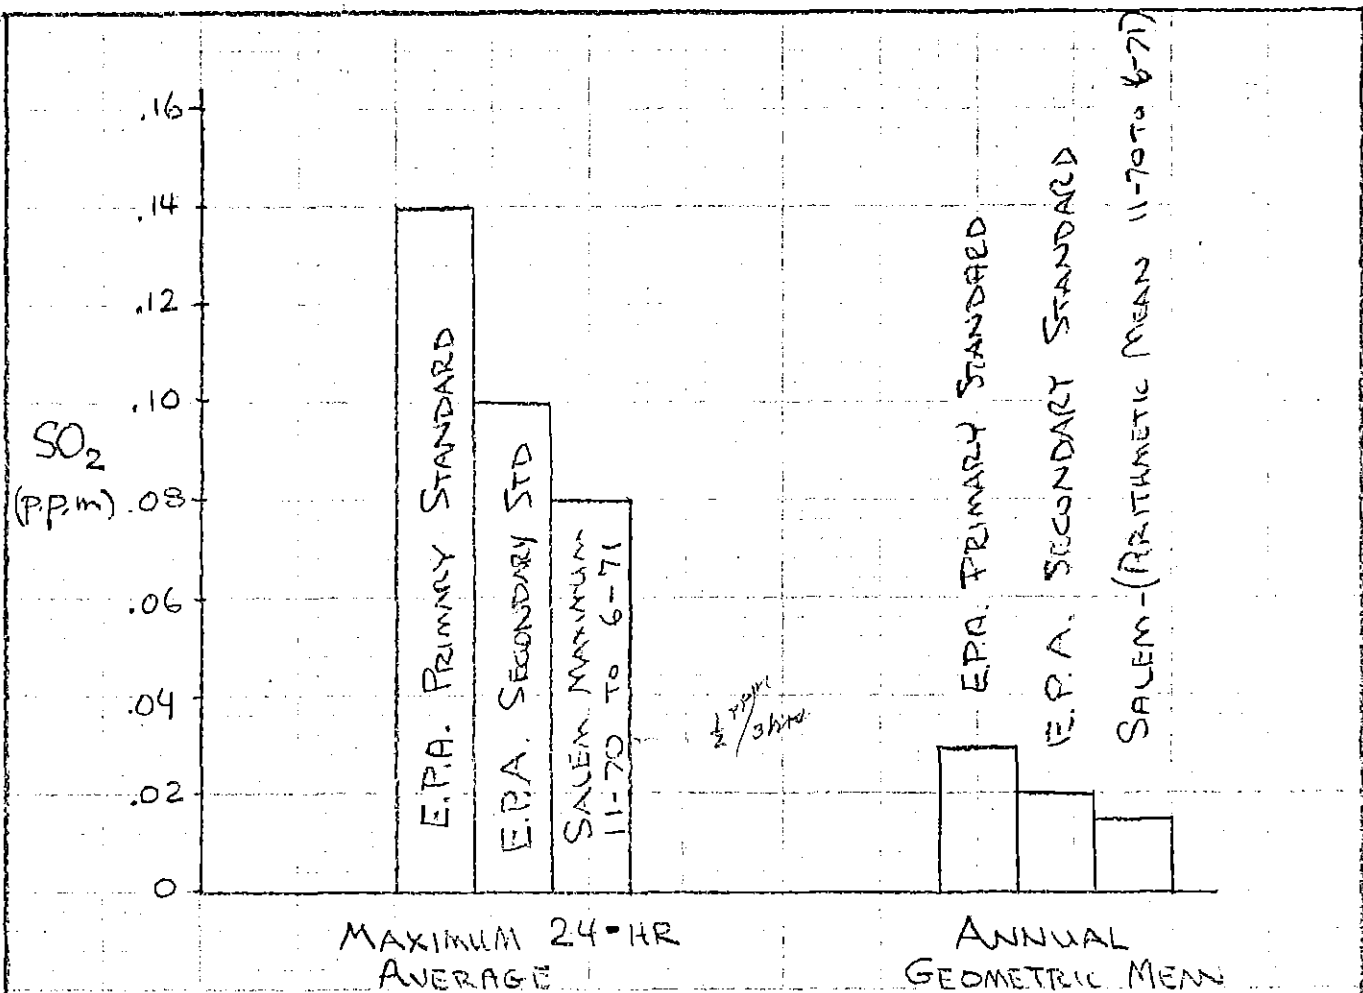 .16
.14
.12
.10
.08
.06
.04
.02
0
SO₂
(P.P.M)
E.P.A. PRIMARY STANDARD
E.P.A. SECONDARY STD
SALEM MAXIMUM
11-70 TO 6-71
½
E.P.A. PRIMARY STANDARD
E.P.A. SECONDARY STANDARD
SALEM-(ARITHMETIC MEAN 11-70 TO 6-71)
MAXIMUM 24-HR
AVERAGE
ANNUAL
GEOMETRIC MEAN